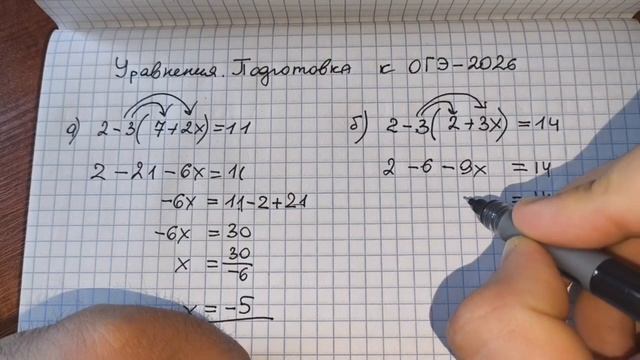 Уравнения. Подготовка к ОГЭ-2026
а) 2-3(7+2x)=11
2-21-6x=11
-6x=11-2+21
-6x=30
x=30/-6
x=-5
б) 2-3(2+3x)=14
2-6-9x=14